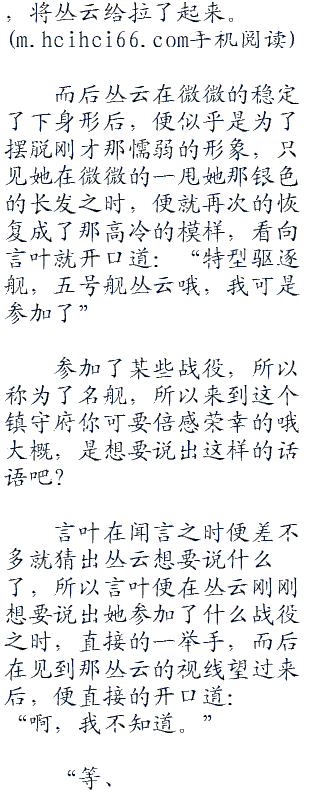 ，将丛云给拉了起来。
(m.hcihci66.com手机阅读)
而后丛云在微微的稳定
了下身形后，便似乎是为了
摆脱刚才那懦弱的形象，只
见她在微微的一甩她那银色
的长发之时，便就再次的恢
复成了那高冷的模样，看向
言叶就开口道：“特型驱逐
舰，五号舰丛云哦，我可是
参加了”
参加了某些战役，所以
称为了名舰，所以来到这个
镇守府你可要倍感荣幸的哦
大概，是想要说出这样的话
语吧？
言叶在闻言之时便差不
多就猜出丛云想要说什么
了，所以言叶便在丛云刚刚
想要说出她参加了什么战役
之时，直接的一举手，而后
在见到那丛云的视线望过来
后，便直接的开口道：
“啊，我不知道。”
“等、